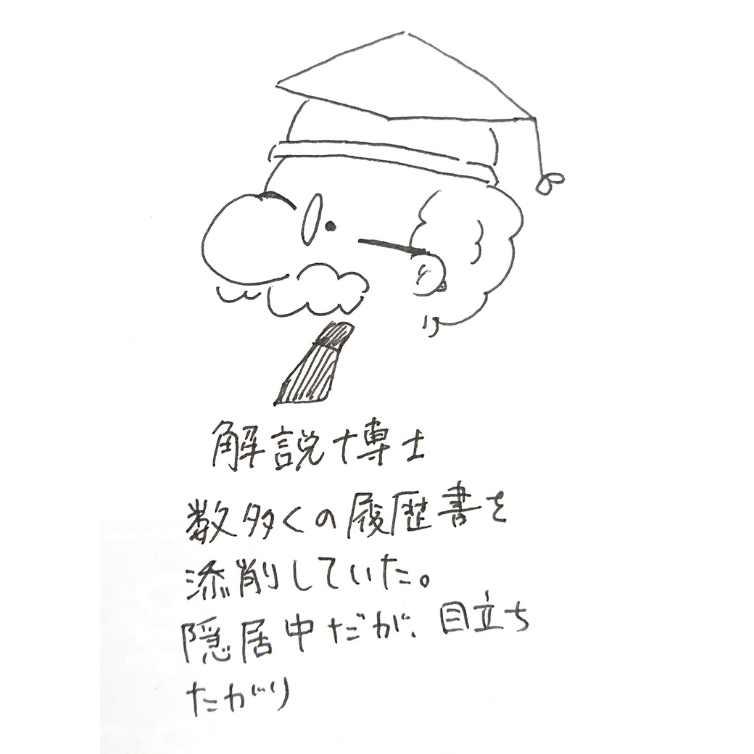 解説博士
数多くの履歴書を
添削していた。
隠居中だが、目立ち
たがり